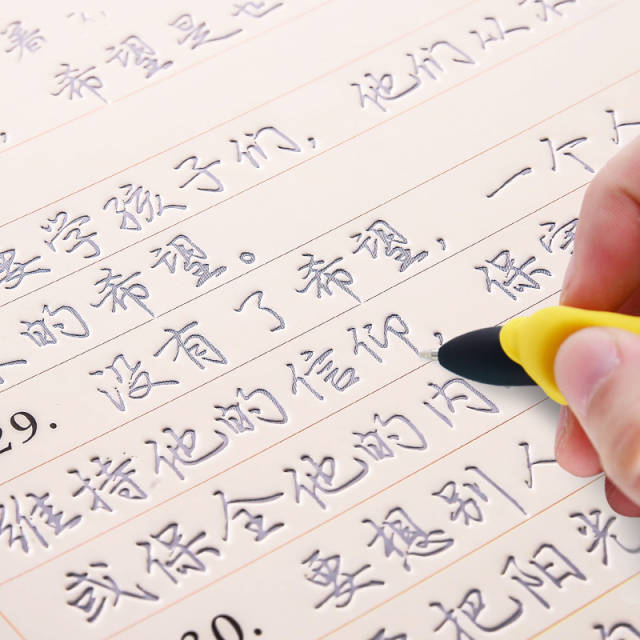 希望是
要学孩子们，他们从不
的希望。
29. 没有了希望，一个人
维持他的信仰、保守
或保全他的内
30. 要想别人
把阳光